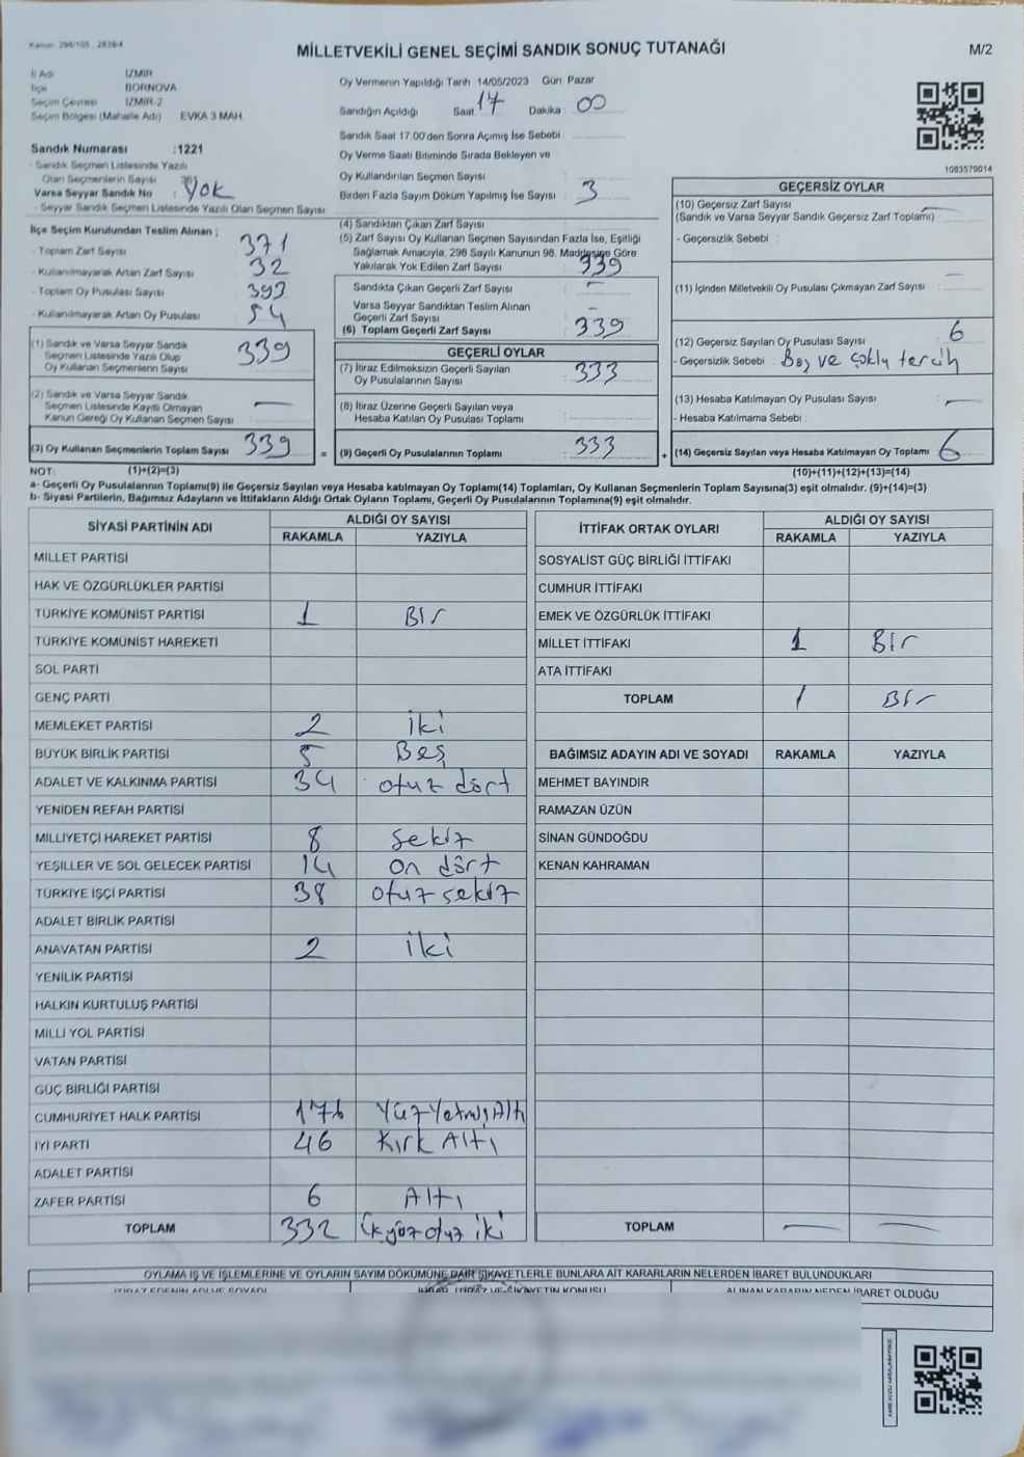 Kanun: 298/105 , 2839/4
MİLLETVEKİLİ GENEL SEÇİMİ SANDIK SONUÇ TUTANAĞI
M/2
İl Adı İZMİR
İlçe BORNOVA
Seçim Çevresi İZMİR-2
Seçim Bölgesi (Mahalle Adı) EVKA 3 MAH.
Sandık Numarası :1221
- Sandık Seçmen Listesinde Yazılı
Olan Seçmenlerin Sayısı
Varsa Seyyar Sandık No : Yok
- Seyyar Sandık Seçmen Listesinde Yazılı Olan Seçmen Sayısı
İlçe Seçim Kurulundan Teslim Alınan ;
- Toplam Zarf Sayısı 371
- Kullanılmayarak Artan Zarf Sayısı 32
- Toplam Oy Pusulası Sayısı 393
- Kullanılmayarak Artan Oy Pusulası 54
(1) Sandık ve Varsa Seyyar Sandık
Seçmen Listesinde Yazılı Olup
Oy Kullanan Seçmenlerin Sayısı 339
(2) Sandık ve Varsa Seyyar Sandık
Seçmen Listesinde Kayıtlı Olmayan
Kanun Gereği Oy Kullanan Seçmen Sayısı —
(3) Oy Kullanan Seçmenlerin Toplam Sayısı 339
Oy Vermenin Yapıldığı Tarih 14/05/2023 Gün Pazar
Sandığın Açıldığı Saat 17 Dakika 00
Sandık Saat 17.00'den Sonra Açımış İse Sebebi
Oy Verme Saati Bitiminde Sırada Bekleyen ve
Oy Kullandırılan Seçmen Sayısı
Birden Fazla Sayım Döküm Yapılmış İse Sayısı 3
(4) Sandıktan Çıkan Zarf Sayısı
(5) Zarf Sayısı Oy Kullanan Seçmen Sayısından Fazla İse, Eşitliği
Sağlamak Amacıyla, 298 Sayılı Kanunun 98. Maddesine Göre
Yakılarak Yok Edilen Zarf Sayısı 339
Sandıkta Çıkan Geçerli Zarf Sayısı —
Varsa Seyyar Sandıktan Teslim Alınan
Geçerli Zarf Sayısı —
(6) Toplam Geçerli Zarf Sayısı 339
GEÇERLİ OYLAR
(7) İtiraz Edilmeksizin Geçerli Sayılan
Oy Pusulalarının Sayısı 333
(8) İtiraz Üzerine Geçerli Sayılan veya
Hesaba Katılan Oy Pusulası Toplamı
= (9) Geçerli Oy Pusulalarının Toplamı 333
1083579014
GEÇERSİZ OYLAR
(10) Geçersiz Zarf Sayısı —
(Sandık ve Varsa Seyyar Sandık Geçersiz Zarf Toplamı)
- Geçersizlik Sebebi
(11) İçinden Milletvekili Oy Pusulası Çıkmayan Zarf Sayısı —
(12) Geçersiz Sayılan Oy Pusulası Sayısı 6
- Geçersizlik Sebebi Boş ve çoklu tercih
(13) Hesaba Katılmayan Oy Pusulası Sayısı —
- Hesaba Katılmama Sebebi
+ (14) Geçersiz Sayılan veya Hesaba Katılmayan Oy Toplamı 6
NOT: (1)+(2)=(3) (10)+(11)+(12)+(13)=(14)
a- Geçerli Oy Pusulalarının Toplamı(9) ile Geçersiz Sayılan veya Hesaba katılmayan Oy Toplamı(14) Toplamları, Oy Kullanan Seçmenlerin Toplam Sayısına(3) eşit olmalıdır. (9)+(14)=(3)
b- Siyasi Partilerin, Bağımsız Adayların ve İttifakların Aldığı Ortak Oyların Toplamı, Geçerli Oy Pusulalarının Toplamına(9) eşit olmalıdır.
SİYASİ PARTİNİN ADI ALDIĞI OY SAYISI
RAKAMLA YAZIYLA
MİLLET PARTİSİ
HAK VE ÖZGÜRLÜKLER PARTİSİ
TÜRKİYE KOMÜNİST PARTİSİ 1 Bir
TÜRKİYE KOMÜNİST HAREKETİ
SOL PARTİ
GENÇ PARTİ
MEMLEKET PARTİSİ 2 iki
BÜYÜK BİRLİK PARTİSİ 5 Beş
ADALET VE KALKINMA PARTİSİ 34 otuz dört
YENİDEN REFAH PARTİSİ
MİLLİYETÇİ HAREKET PARTİSİ 8 sekiz
YEŞİLLER VE SOL GELECEK PARTİSİ 14 on dört
TÜRKİYE İŞÇİ PARTİSİ 38 otuz sekiz
ADALET BİRLİK PARTİSİ
ANAVATAN PARTİSİ 2 iki
YENİLİK PARTİSİ
HALKIN KURTULUŞ PARTİSİ
MİLLİ YOL PARTİSİ
VATAN PARTİSİ
GÜÇ BİRLİĞİ PARTİSİ
CUMHURİYET HALK PARTİSİ 176 Yüz Yetmiş Altı
İYİ PARTİ 46 Kırk Altı
ADALET PARTİSİ
ZAFER PARTİSİ 6 Altı
TOPLAM 332 üçyüz otuz iki
İTTİFAK ORTAK OYLARI ALDIĞI OY SAYISI
RAKAMLA YAZIYLA
SOSYALİST GÜÇ BİRLİĞİ İTTİFAKI
CUMHUR İTTİFAKI
EMEK VE ÖZGÜRLÜK İTTİFAKI
MİLLET İTTİFAKI 1 Bir
ATA İTTİFAKI
TOPLAM 1 Bir
BAĞIMSIZ ADAYIN ADI VE SOYADI RAKAMLA YAZIYLA
MEHMET BAYINDIR
RAMAZAN ÜZÜN
SİNAN GÜNDOĞDU
KENAN KAHRAMAN
TOPLAM — —
OYLAMA İŞ VE İŞLEMLERİNE VE OYLARIN SAYIM DÖKÜMÜNE DAİR ŞİKAYETLERLE BUNLARA AİT KARARLARIN NELERDEN İBARET BULUNDUKLARI
ALINAN KARARIN NEDEN İBARET OLDUĞU